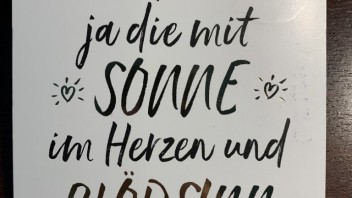 ja die mit
SONNE
im Herzen und
BLÖDSINN